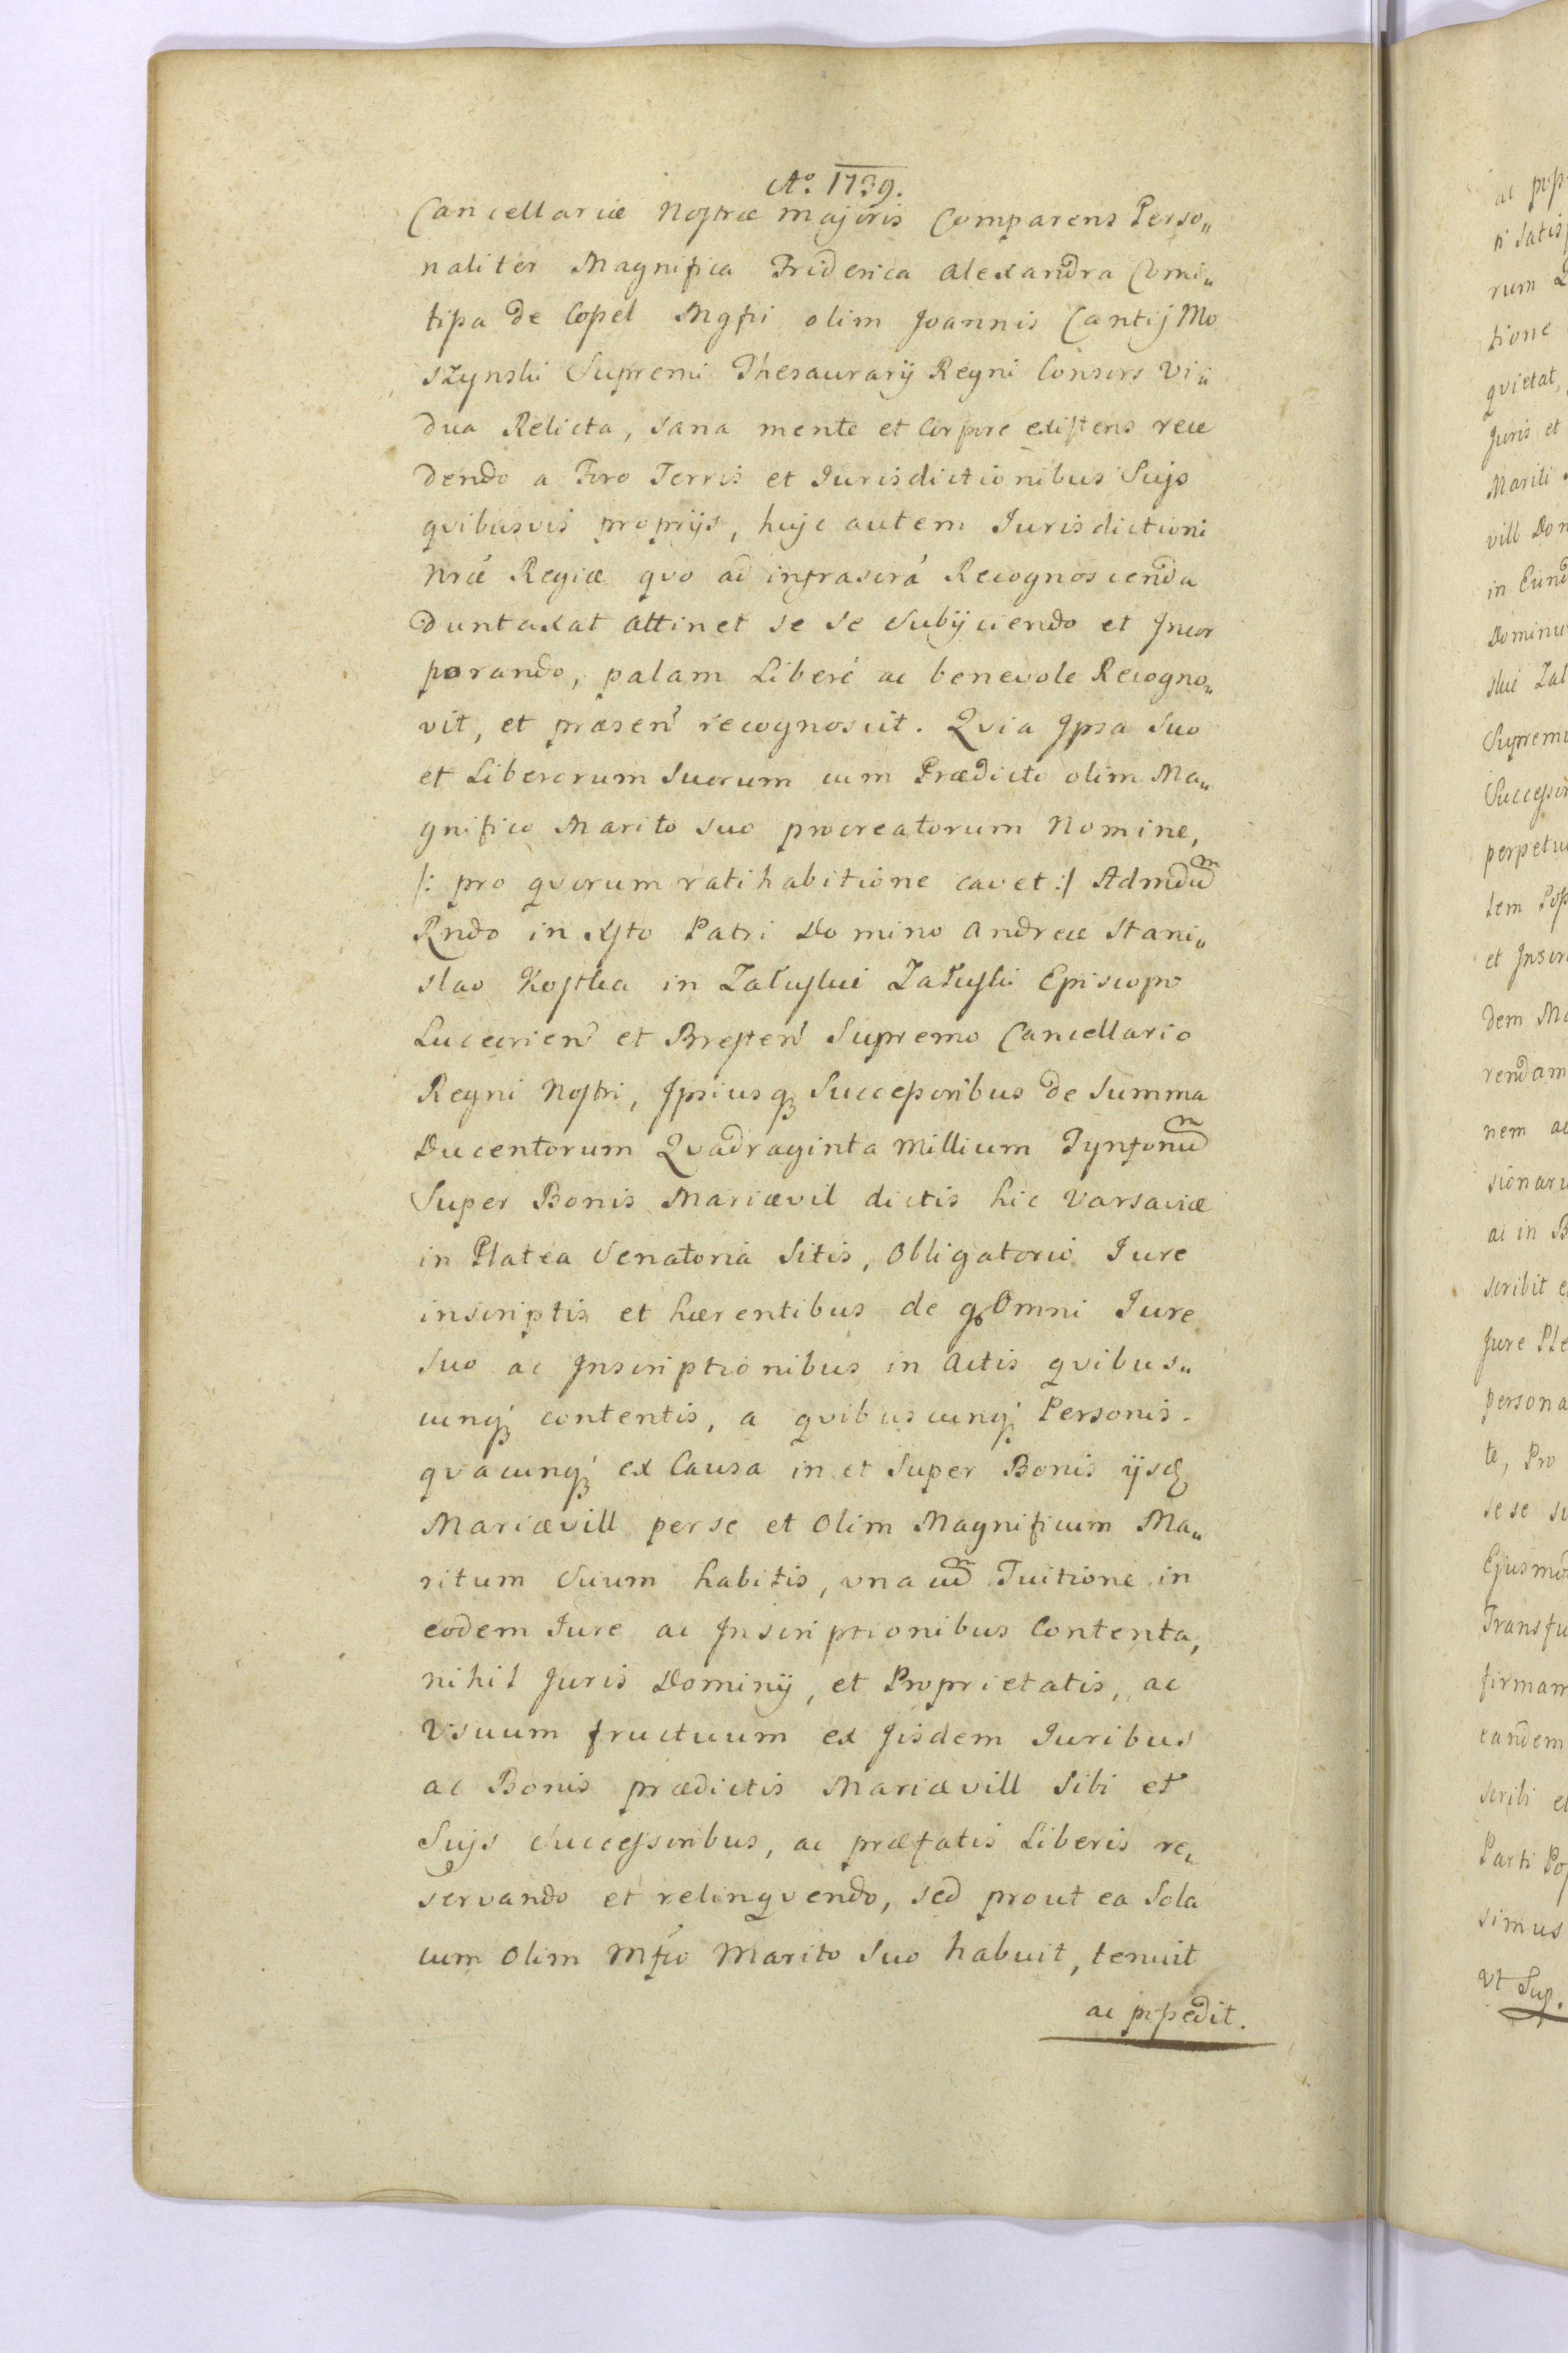 Aº. 1739.
Cancellariæ Nostræ majoris Comparens Perso„
naliter Magnifica Friderica Alexandra Comi„
tissa de Copel Mgfci olim Joannis Cantij Mo
szynski Supremi Thesaurarij Regni Consors Vi„
dua Relicta, sana mente et Corpore existens rece
dendo a Foro Terris et Iurisdictionibus Suijs
qvibusvis proprijs, huic autem Iurisdictioni
nræ Regiæ qvo ad infrascrá Recognoscenda
duntaxat attinet se se Subijciendo et Incor
porando, palam Liberé ac benevole Recogno„
vit, et præsen̛ recognoscit. Qvia Ipsa Suo
et Liberorum Suorum cum Prædicto olim Ma„
gnifico Marito suo procreatorum Nomine,
/: pro qvorum ratihabitione cavet :/ Admdum̃
Rndo in Xsto Patri Domino Andreæ Stani„
slao Kostka in Załuskie Załuski Episcopo
Luceorien̛ et Bresten̛ Supremo Cancellario
Regni Nostri, Ipsiusq̨ Successoribus de Summa
Ducentorum Qvadraginta Millium Tynfonum̃
Super Bonis Mariævil dictis hic Varsaviæ
in Platea Senatoria Sitis, Obligatorio Iure
inscriptis et hærentibus de qo Omni Iure
Suo ac Inscriptionibus in Actis qvibus„
cunq̨ contentis, a qvibuscunq̨ Personis
qvacunq̨ ex Causa in et Super Bonis ijsd̨
Mariævill per se et Olim Magnificum Ma„
ritum Suum habitis, vna cum̃ Tuitione in
eodem Iure ac Inscriptionibus Contenta,
nihil Juris Dominij, et Proprietatis, ac
Vsuum fructuum ex Jisdem Iuribus
ac Bonis prædictis Mariævill Sibi et
Suijs Successoribus, ac præfatis Liberis re„
servando et relinqvendo, sed prout ea Sola
cum Olim Mfco Marito Suo habuit, tenuit
ac possedit.